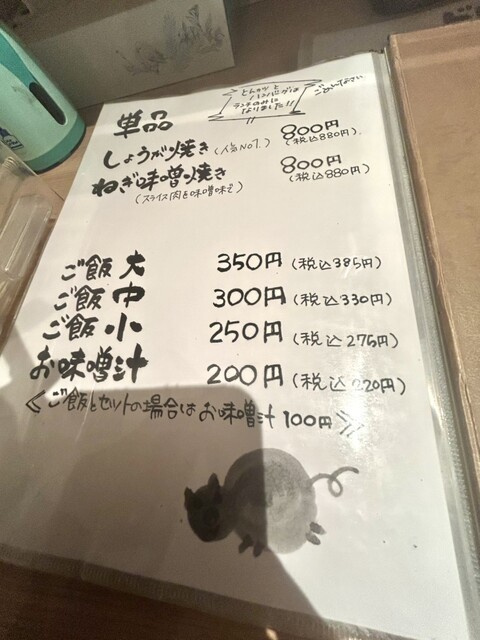 とんかつと
ハンバーグは
ランチのみに
なりました!!
ごめんなさい
単品
しょうが焼き (人気No1.) 800円 (税込880円)
ねぎ味噌焼き 800円 (税込880円)
(スライス肉を味噌味で)
ご飯 大 350円 (税込385円)
ご飯 中 300円 (税込330円)
ご飯 小 250円 (税込275円)
お味噌汁 200円 (税込220円)
《ご飯とセットの場合はお味噌汁 100円》